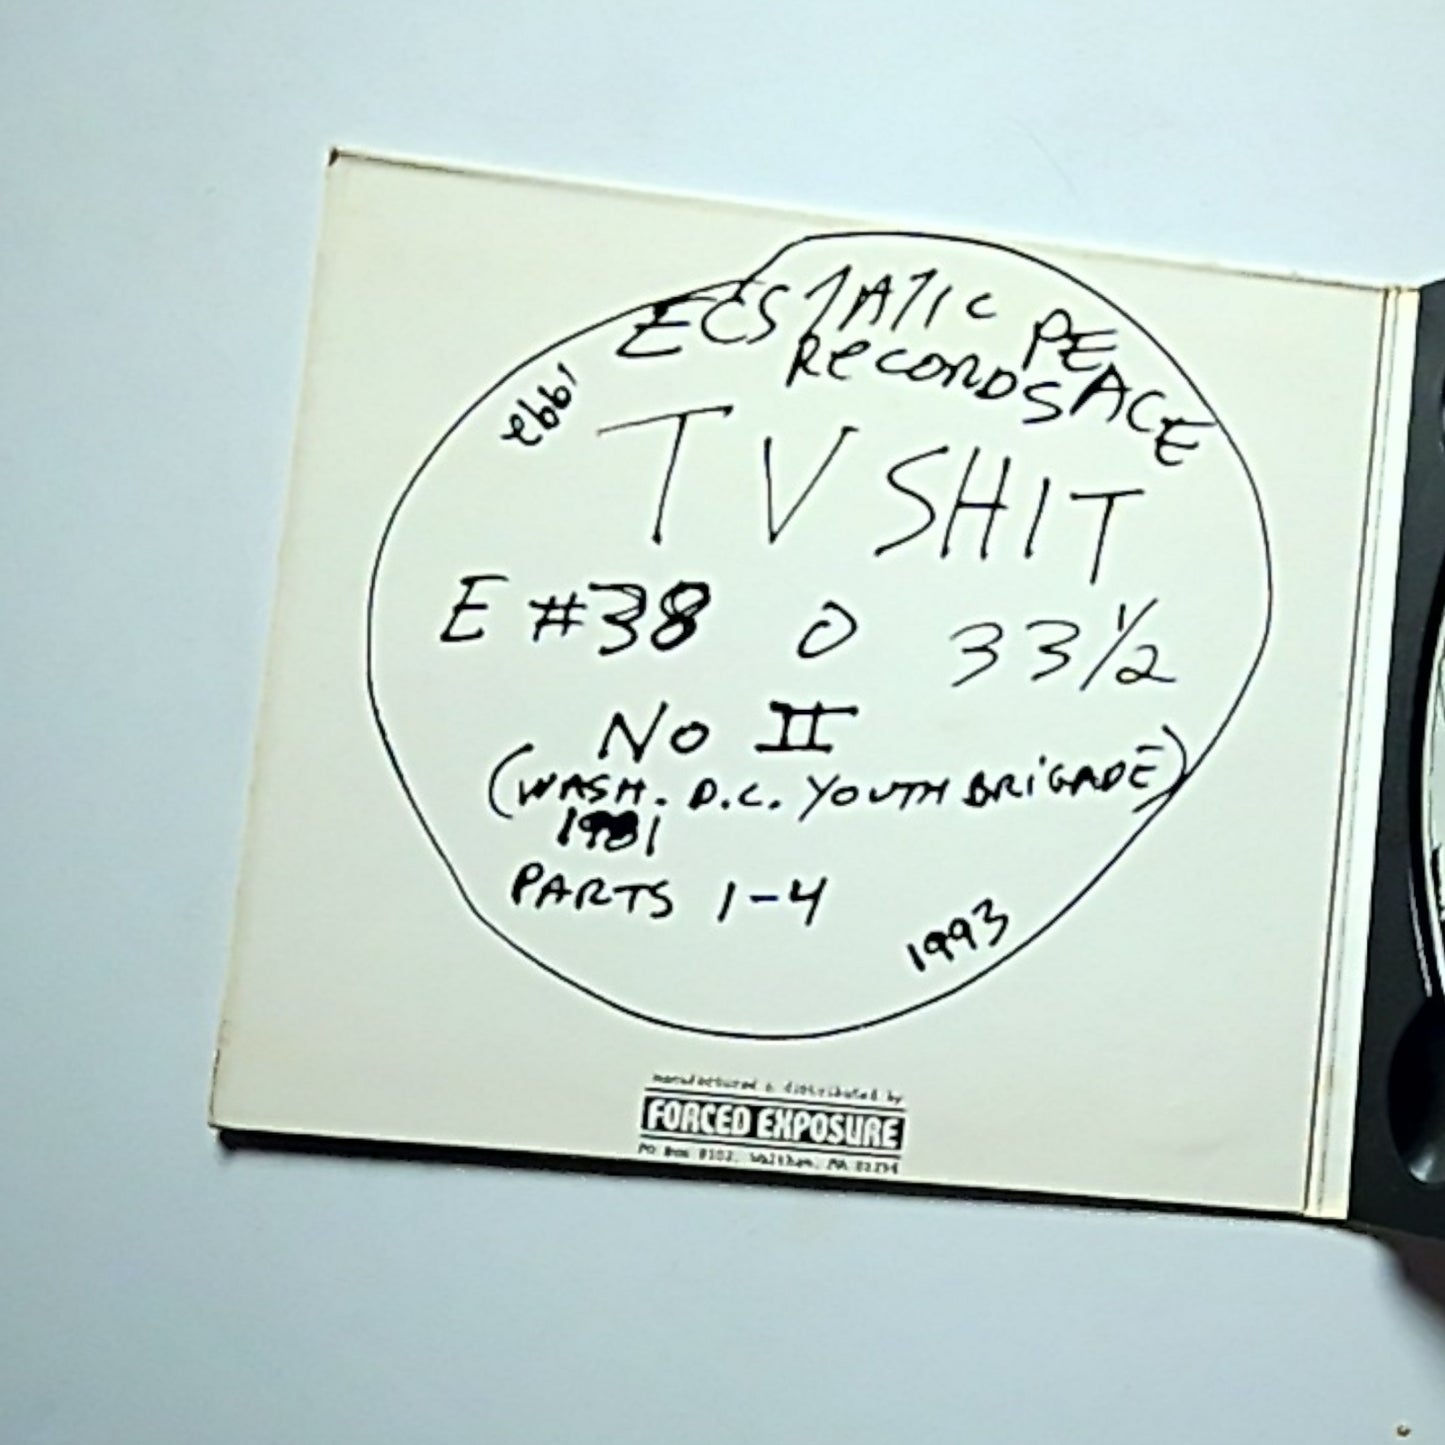 ECSTATIC PEACE
RECORDS
1992
TV SHIT
E #38 O 33 1/2
NO II
(WASH. D.C. YOUTH BRIGADE)
1981
PARTS 1-4
1993
manufactured & distributed by
FORCED EXPOSURE
PO Box Waltham, MA